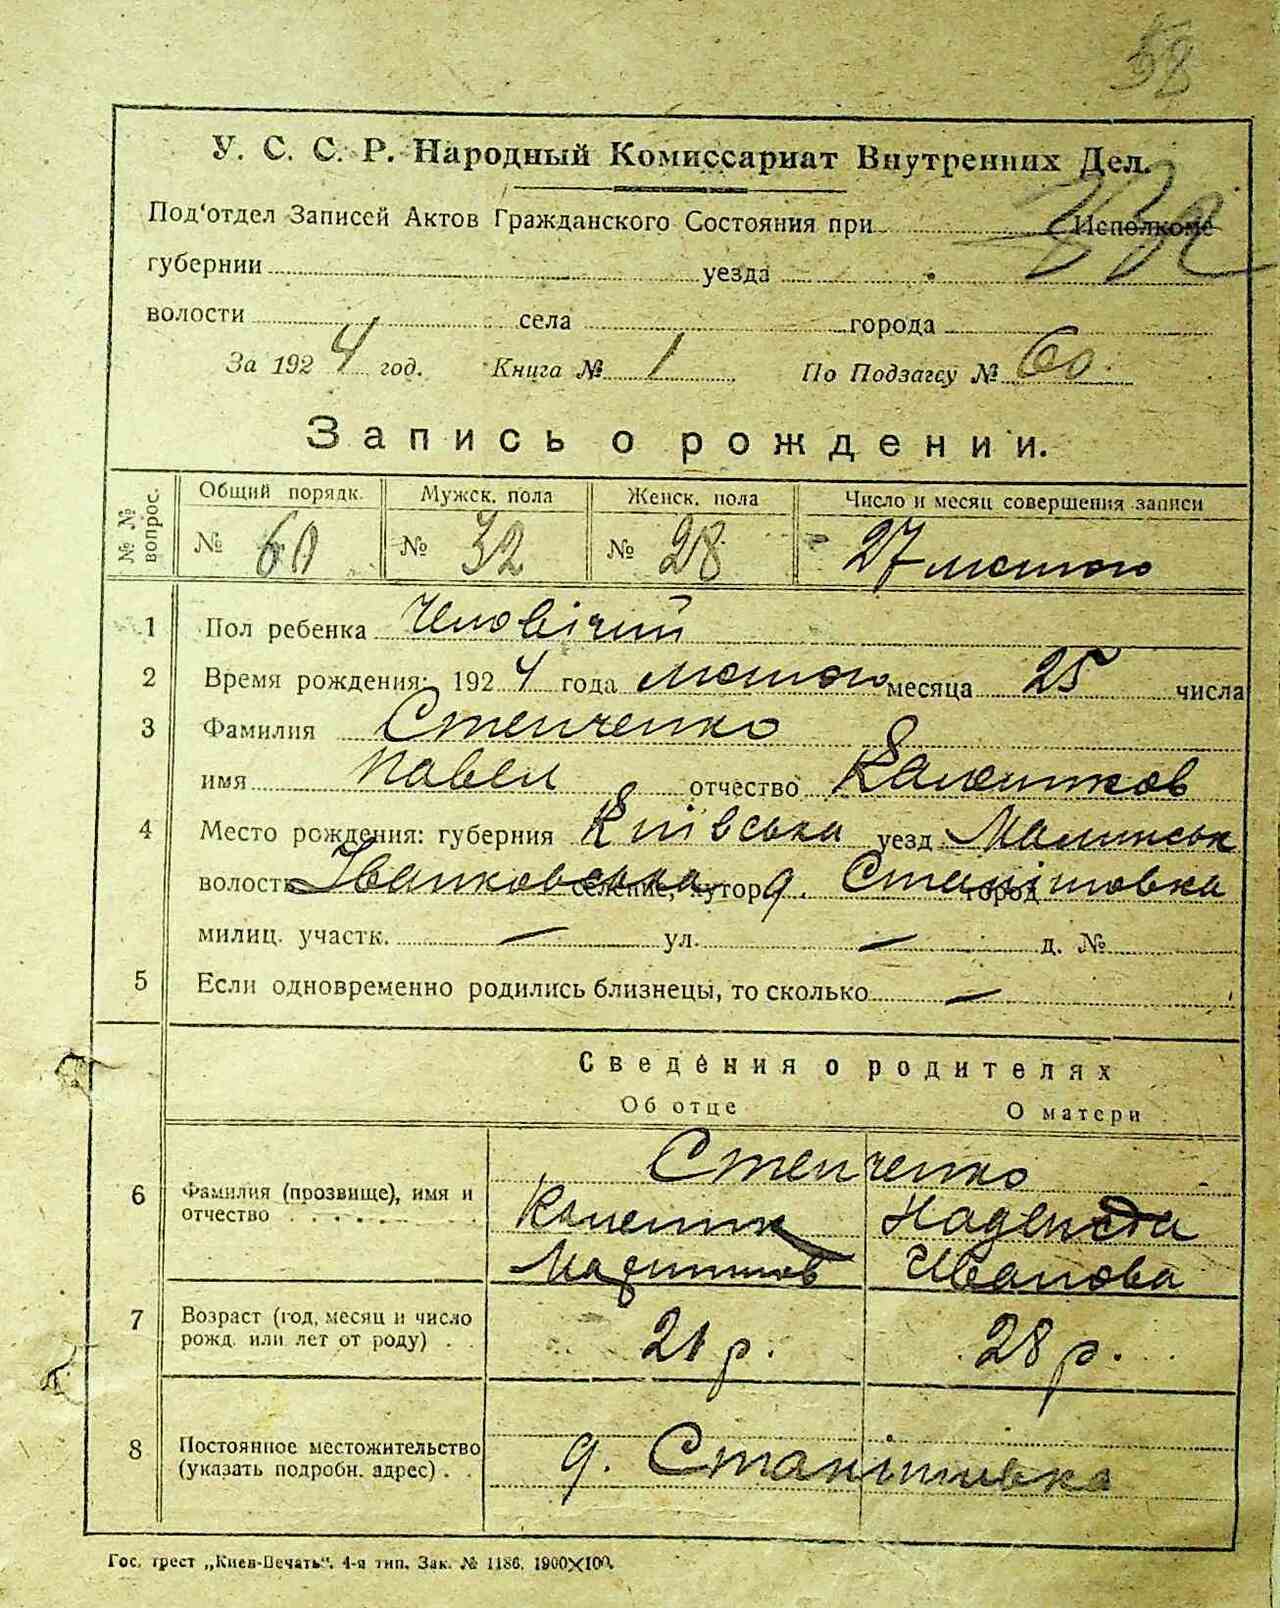 58
У. С. С. Р. Народный Комиссариат Внутренних Дел.
Под'отдел Записей Актов Гражданского Состояния при Исполкоме
губернии уезда
волости села города
За 1924 год. Книга № 1 По Подзагсу № 60.
Запись о рождении.
№ № вопрос. Общий порядк. Мужск. пола Женск. пола Число и месяц совершения записи
№ 60 № 32 № 28 27 лютого
1 Пол ребенка Чоловічий
2 Время рождения: 1924 года лютого месяца 25 числа
3 Фамилия Стенченко
имя Павел отчество
4 Место рождения: губерния Київська уезд Малинськ
волость Іванковська селение, хутор д. Станішовка город
милиц. участк. — ул. — д. №
5 Если одновременно родились близнецы, то сколько —
Сведения о родителях
Об отце О матери
Стенченко
6 Фамилия (прозвище), имя и отчество Надежда
Иванова
7 Возраст (год, месяц и число рожд. или лет от роду) . . 21 р. 28 р.
8 Постоянное местожительство (указать подробн. адрес) . . д. Станішовка
Гос. трест „Киев-Печать“. 4-я тип. Зак. № 1186. 1900×100.